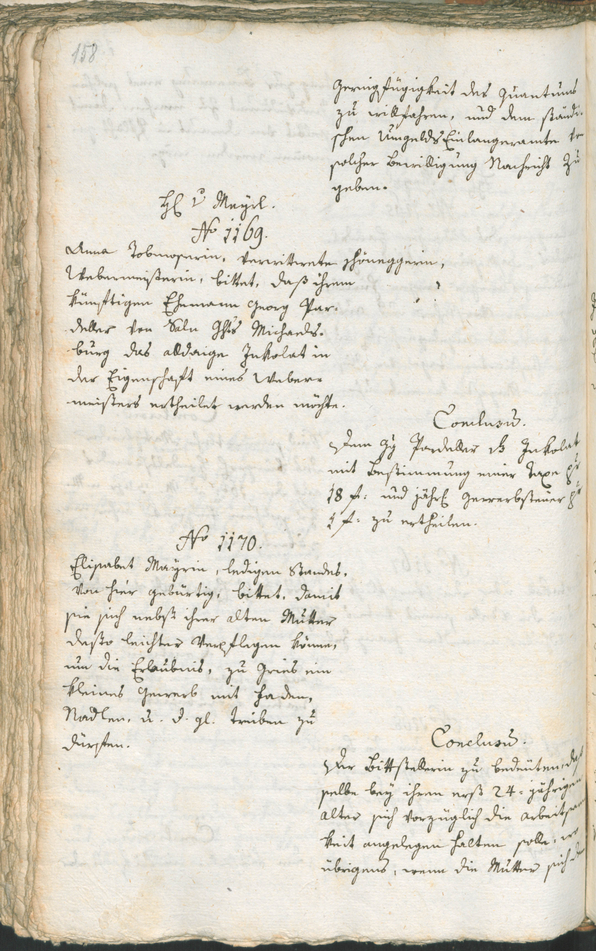 158
Geringfügigkeit des Quantums
zu willfahren, und dem ständi-
schen Umgelds Einlangeramte
solcher Bewilligung Nachricht zu
geben.
H. v Mayrl.
No 1169.
Anna Tobmoserin, verwittwete Schöneggerin,
Webermeisterin, bittet, daß ihrem
künftigen Ehemann Georg Par-
deller von Ghts Michaels-
burg das alldaige Inkolat in
der Eigenschaft eines Weber-
meisters ertheilet werden möchte.
Conclusu.
Dem Pardeller Inkolat
mit Bestimmung einer Taxe pr
18 f: und jährl Gewerbsteuer pr
1 f: zu ertheilen.
No 1170.
Elisabet Mayrin, ledigen Standes,
von hier gebürtig, bittet, damit
sie sich nebst ihrer alten Mutter
desto leichter verpflegen könne,
um die Erlaubniß, zu Gries ein
kleines Gewerb mit Faden,
Nadlen, u. d. gl. treiben zu
dürfen.
Conclusu.
Der Bittstellerin zu bedeuten, daß
selbe bey ihrem erst 24-jährigen
Alter sich vorzüglich die Arbeitsam
keit angelegen halten solle,
übrigens, wenn die Mutter sich